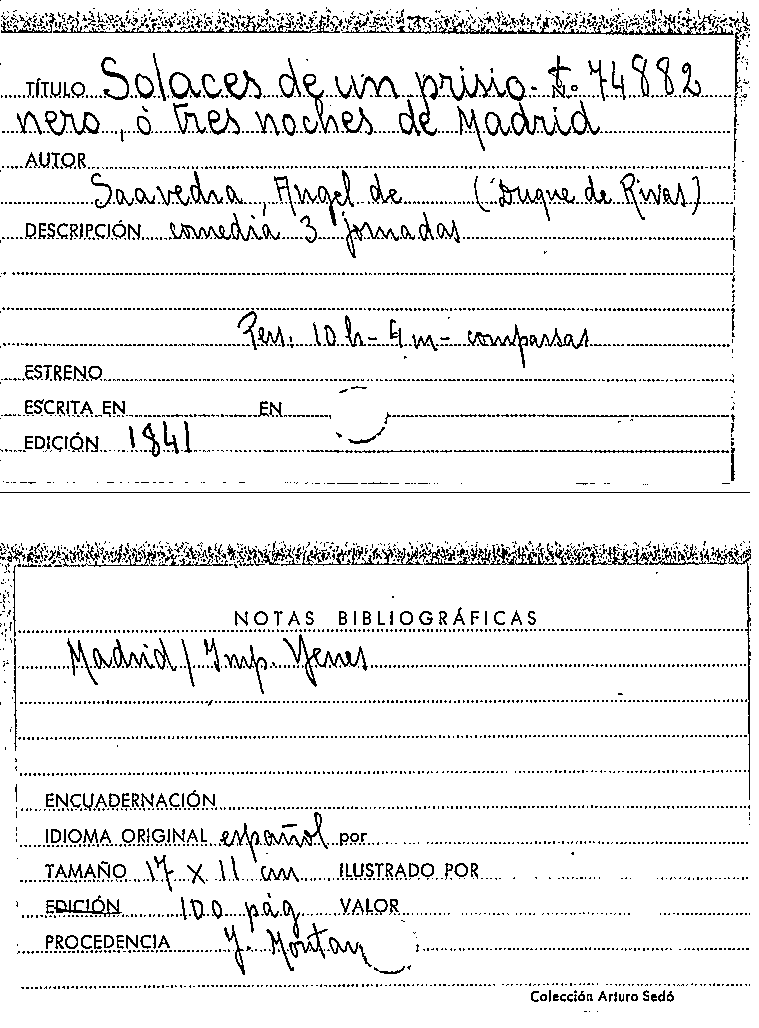 TÍTULO Solaces de un prisio- t. 74882
nero, ò tres noches de Madrid
AUTOR
Saavedra, Angel de (Duque de Rivas)
DESCRIPCIÓN comedia 3 jornadas
Pers. 10 h - 4 m - comparsas
ESTRENO
ESCRITA EN EN
EDICIÓN 1841
NOTAS BIBLIOGRÁFICAS
Madrid / Imp. Yenes
ENCUADERNACIÓN
IDIOMA ORIGINAL español por
TAMAÑO 17 X 11 cm ILUSTRADO POR
EDICIÓN 100 pág VALOR
PROCEDENCIA
Colección Arturo Sedó